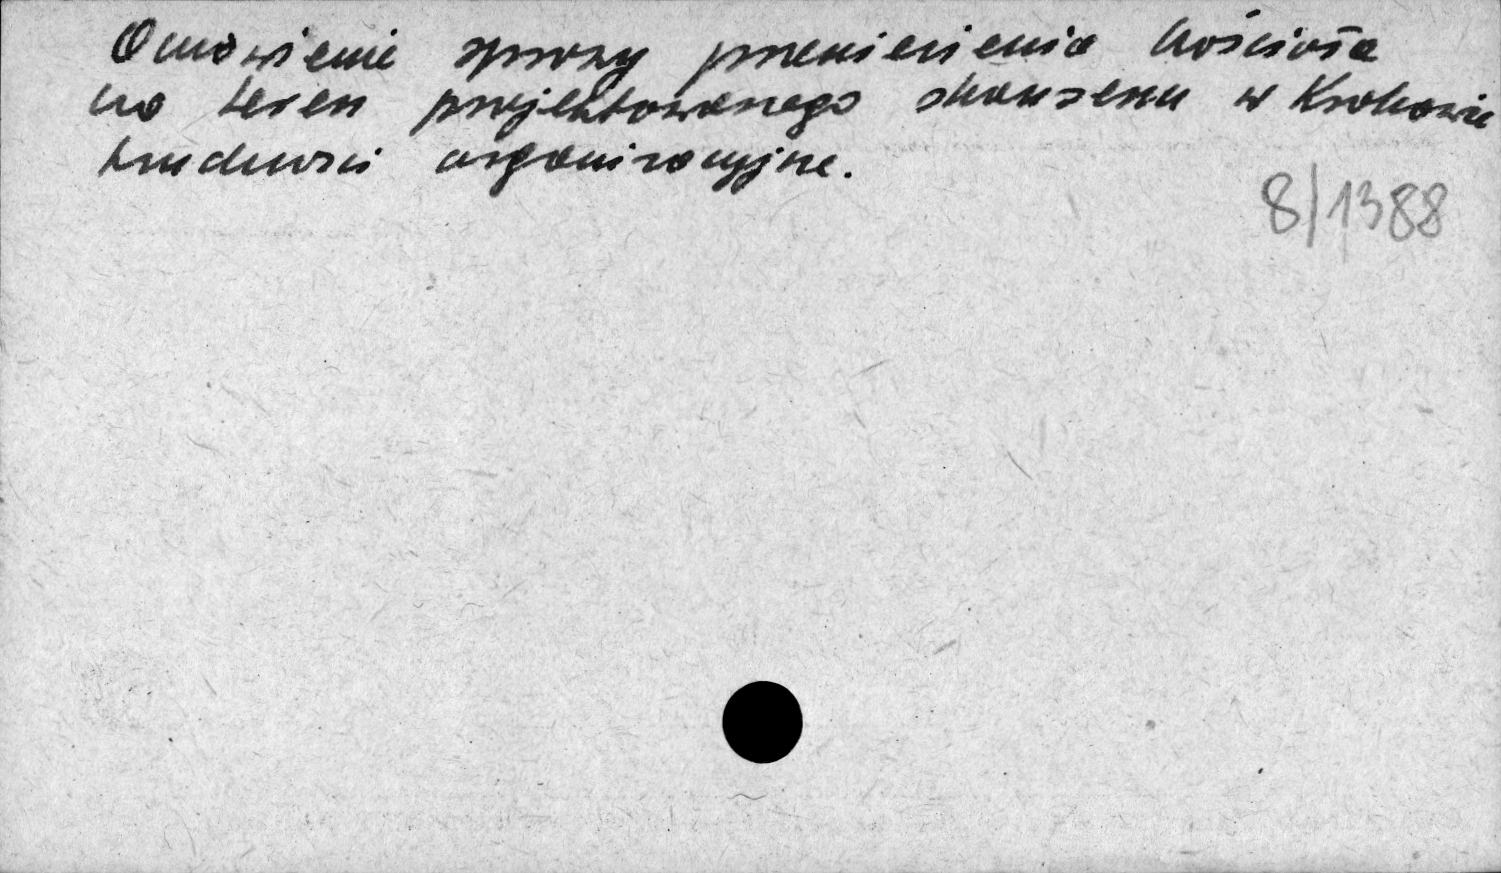 Omówienie sprawy przeniesienia kościoła
na teren projektowanego skansenu w Krakowie
trudności organizacyjne.
8/1388